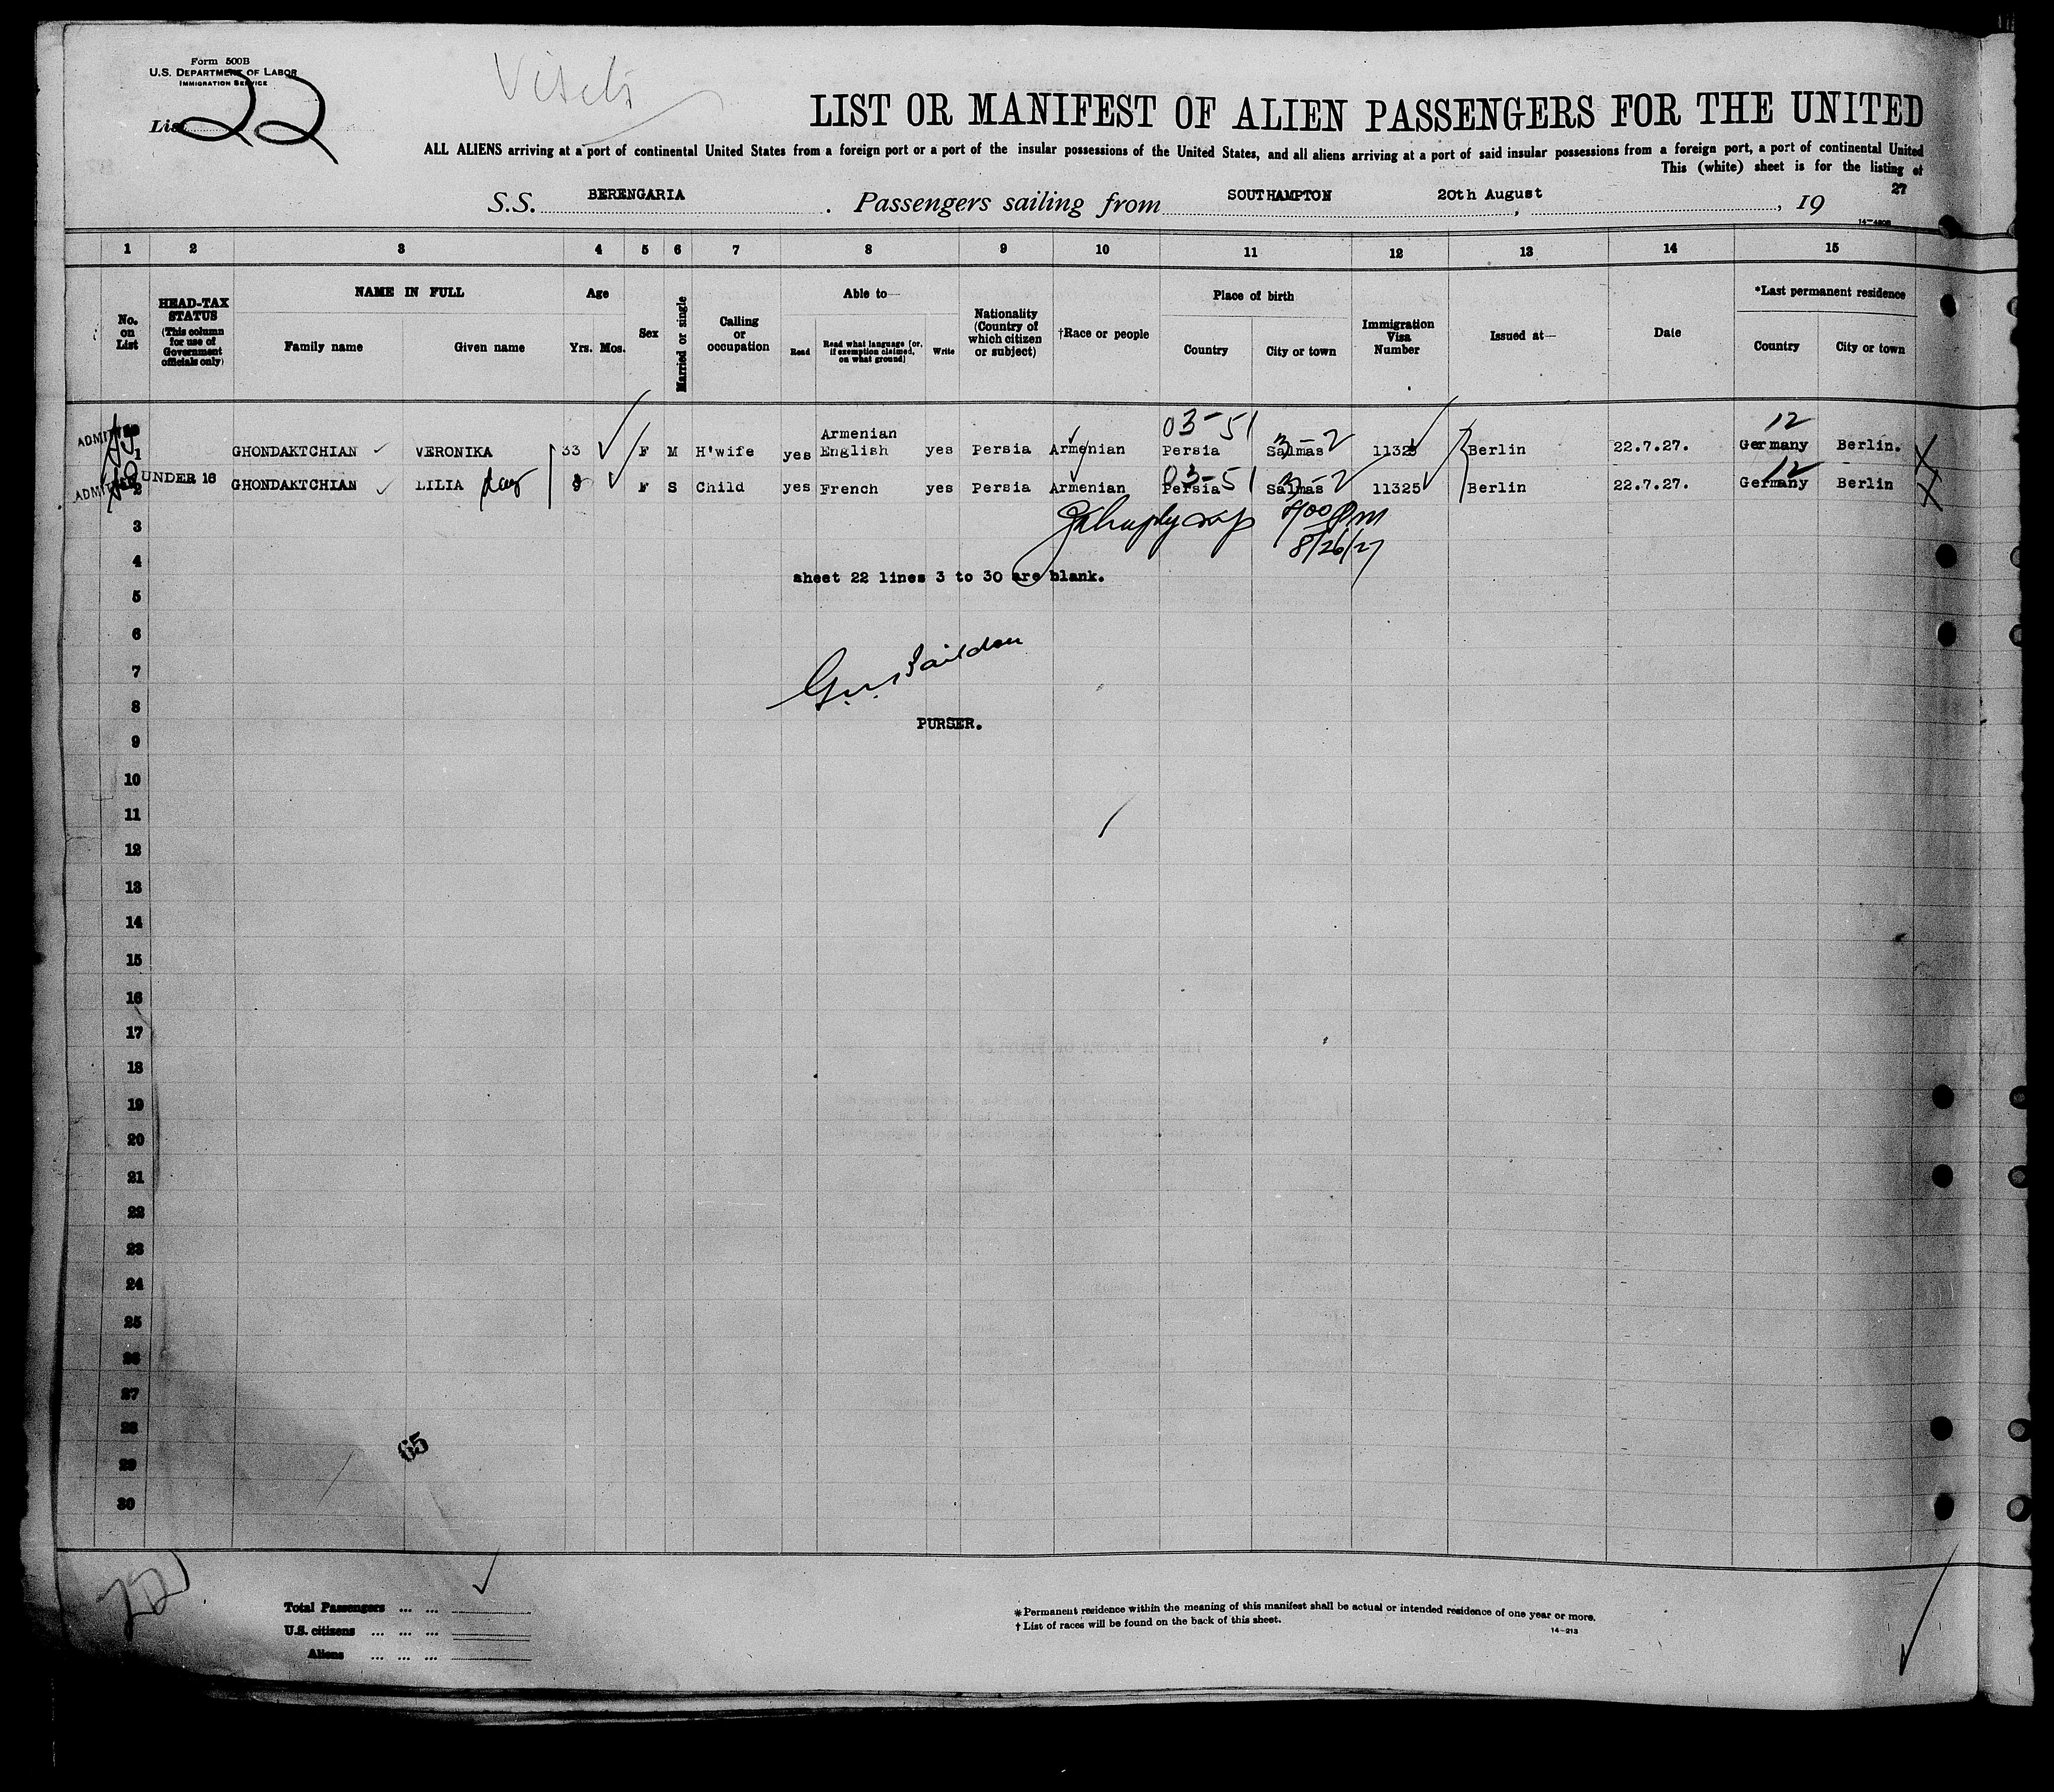 Form 500B
U.S. DEPARTMENT OF LABOR
IMMIGRATION SERVICE
List 22
LIST OR MANIFEST OF ALIEN PASSENGERS FOR THE UNITED
ALL ALIENS arriving at a port of continental United States from a foreign port or a port of the insular possessions of the United States, and all aliens arriving at a port of said insular possessions from a foreign port, a port of continental United
This (white) sheet is for the listing of
S.S. BERENGARIA. Passengers sailing from SOUTHAMPTON, 20th August, 1927
14-480B
1 2 3 4 5 6 7 8 9 10 11 12 13 14 15
No. on List
HEAD-TAX STATUS (This column for use of Government officials only)
NAME IN FULL
Family name
Given name
Age
Yrs. Mos.
Sex
Married or single
Calling or occupation
Able to—
Read
Read what language (or, if exemption claimed, on what ground)
Write
Nationality (Country of which citizen or subject)
†Race or people
Place of birth
Country
City or town
Immigration Visa Number
Issued at—
Date
*Last permanent residence
Country
City or town
03-51 12
ADMITTED 1 GHONDAKTCHIAN VERONIKA 33 F M H'wife yes Armenian English yes Persia Armenian Persia Salmas 11325 Berlin 22.7.27. Germany Berlin.
03-51 12
ADMITTED 2 UNDER 16 GHONDAKTCHIAN LILIA dau 9 F S Child yes French yes Persia Armenian Persia Salmas 11325 Berlin 22.7.27. Germany Berlin
3
8/26/27
4
sheet 22 lines 3 to 30 are blank.
5
6
7
8
PURSER.
9
10
11
12
13
14
15
16
17
18
19
20
21
22
23
24
25
26
27
28
65
29
30
22
Total Passengers ... ...
U.S. citizens ... ... ...
Aliens ... ... ...
*Permanent residence within the meaning of this manifest shall be actual or intended residence of one year or more.
†List of races will be found on the back of this sheet.
14-213